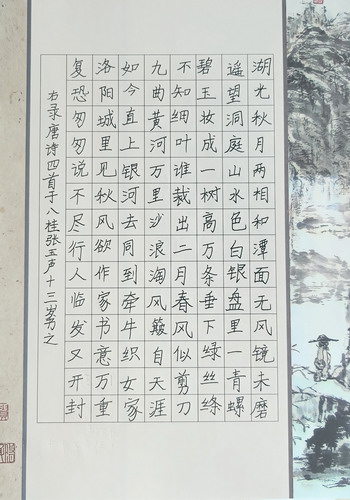 湖光秋月两相和潭面无风镜未磨
遥望洞庭山水色白银盘里一青螺
碧玉妆成一树高万条垂下绿丝绦
不知细叶谁裁出二月春风似剪刀
九曲黄河万里沙浪淘风簸自天涯
如今直上银河去同到牵牛织女家
洛阳城里见秋风欲作家书意万重
复恐匆匆说不尽行人临发又开封
右录唐诗四首于八桂张玉声十三岁书之